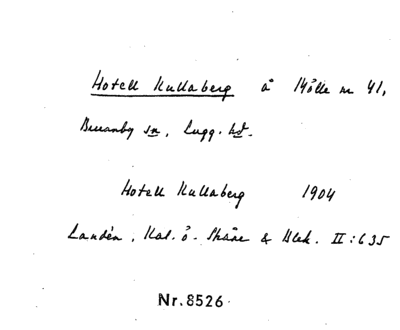 Hotell Kullaberg å Mölle nr 41,
Brunnby sn, Lugg. hd.
Hotell Kullaberg 1904
Landén, Kat. ö. Skåne & Blek. II:635
Nr. 8526